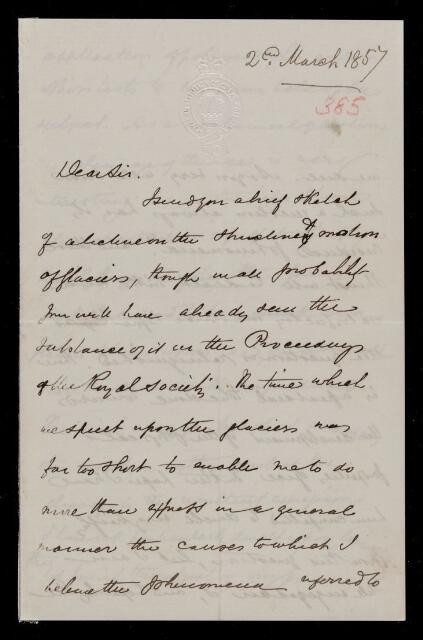 2nd March 1857
385
Dear Sir.
I send you a brief sketch
of a lecture on the structure & motion
of glaciers, though in all probability
you will have already seen the
substance of it in the Proceedings
of the Royal Society. The time which
we spent upon the glaciers was
far too short to enable me to do
more than express in a general
manner the causes to which I
believe the phenomena referred to